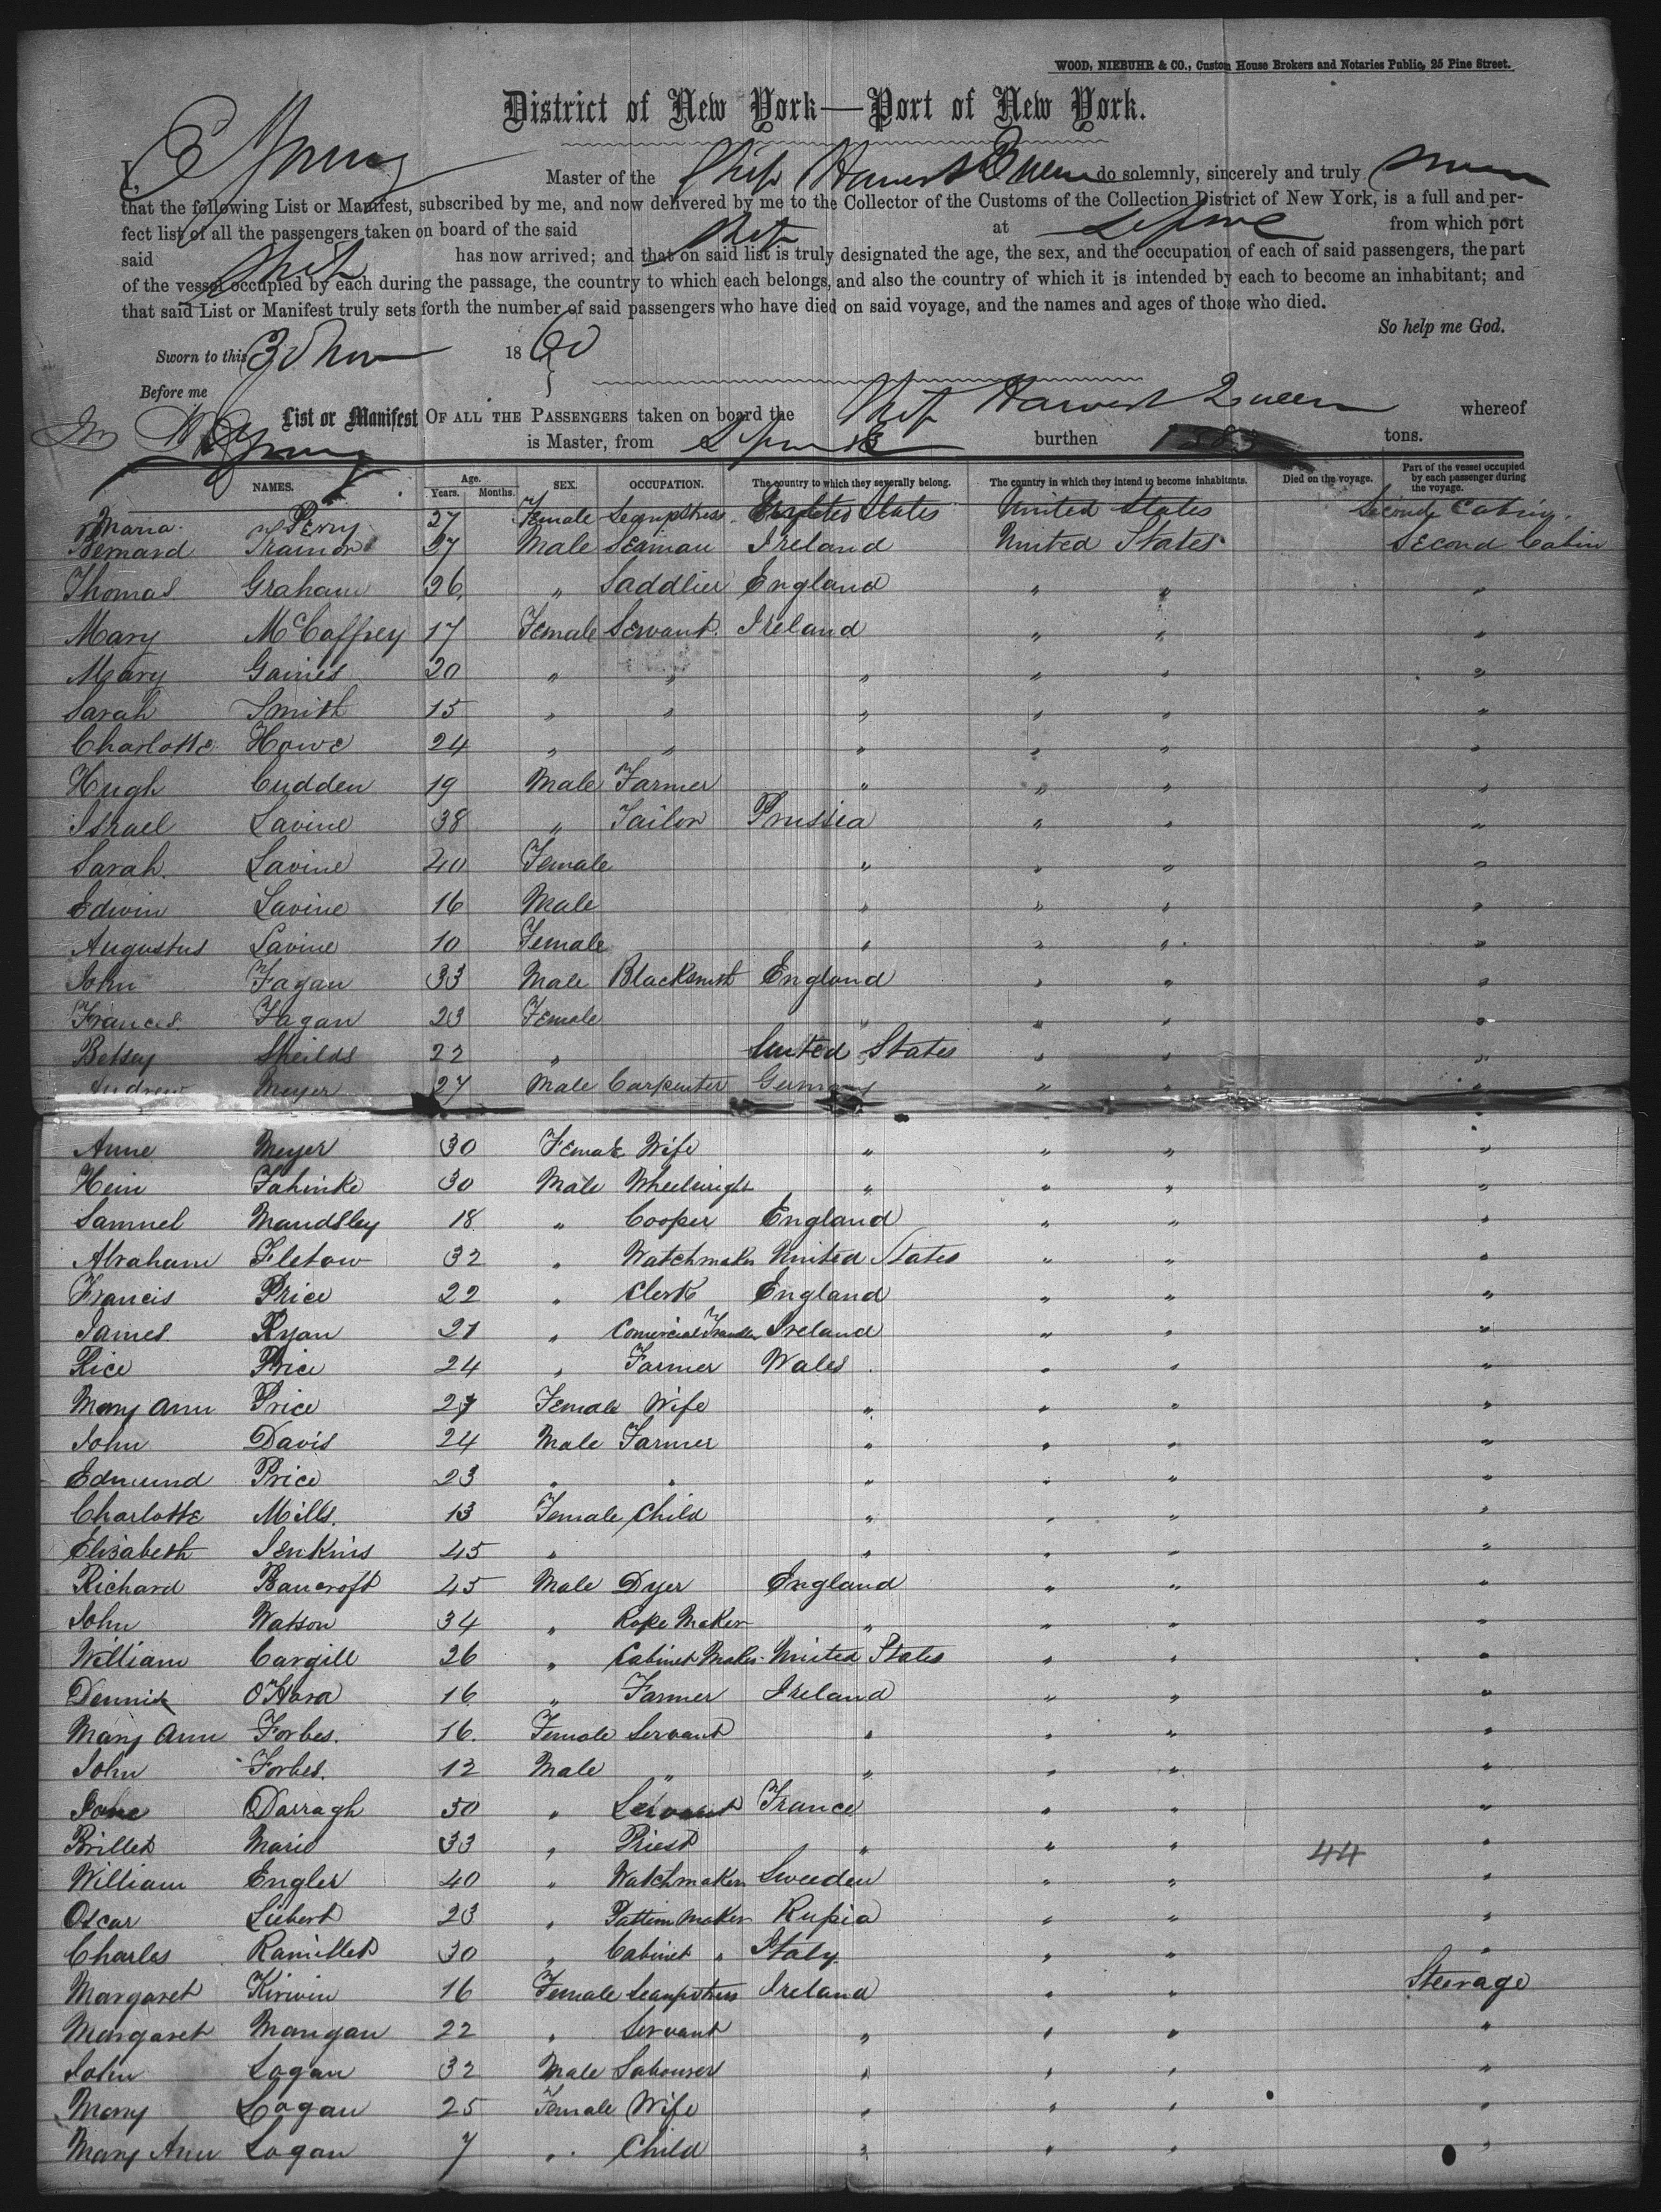 WOOD, NIEBUHR & CO., Custom House Brokers and Notaries Public, 25 Pine Street.
District of New York—Port of New York.
I, C Young Master of the Ship Harvest Queen do solemnly, sincerely and truly swear
that the following List or Manifest, subscribed by me, and now delivered by me to the Collector of the Customs of the Collection District of New York, is a full and per-
fect list of all the passengers taken on board of the said Ship at from which port
said Ship has now arrived; and that on said list is truly designated the age, the sex, and the occupation of each of said passengers, the part
of the vessel occupied by each during the passage, the country to which each belongs, and also the country of which it is intended by each to become an inhabitant; and
that said List or Manifest truly sets forth the number of said passengers who have died on said voyage, and the names and ages of those who died.
So help me God.
Sworn to this 30 Nov 1860
Before me
List or Manifest OF ALL THE PASSENGERS taken on board the Ship Harvest Queen whereof
Young is Master, from burthen tons.
NAMES. Age. Years. Months. SEX. OCCUPATION. The country to which they severally belong. The country in which they intend to become inhabitants. Died on the voyage. Part of the vessel occupied by each passenger during the voyage.
Maria Perry 27 Female Seampstres United States United States Second Cabin.
Bernard Trainor 27 Male Seaman Ireland United States Second Cabin
Thomas Graham 26 " Saddlier England " " "
Mary McCaffrey 17 Female Servant. Ireland " " "
Mary Gaines 20 " " " " " "
Sarah Smith 15 " " " " " "
Charlotte Howe 24 " " " " " "
Hugh Cudden 19 Male Farmer " " " "
Israel Lavine 38 " Tailor Prussia " " "
Sarah Lavine 40 Female " " " "
Edwin Lavine 16 Male " " " "
Augustus Lavine 10 Female " " " "
John Fagan 33 Male Blacksmith England " " "
Frances Fagan 23 Female " " " "
Betsey Sheilds 22 " United States " " "
Andrew Meyer 27 Male Carpenter Germany " " "
Anne Meyer 30 Female Wife " " " "
Hein Fahinke 30 Male Wheelwright " " " "
Samuel Mandsley 18 " Cooper England " " "
Abraham Fletow 32 " Watchmaker United States " " "
Francis Price 22 " Clerk England " " "
James Ryan 21 " Comercial Traveller Ireland " " "
Rice Price 24 " Farmer Wales " " "
Mary Ann Price 27 Female Wife " " " "
John Davis 24 Male Farmer " " " "
Edmund Price 23 " " " " " "
Charlotte Mills. 13 Female Child " " " "
Elisabeth Jenkins 45 " " " " "
Richard Bancroft 45 Male Dyer England " " "
John Watson 34 " Rope Maker " " " "
William Cargill 26 " Cabinet Maker United States " " "
Dennis O'Hara 16 " Farmer Ireland " " "
Mary Ann Forbes. 16. Female Servant " " " "
John Forbes. 12 Male " " " " "
Darragh 50 " Servant France " " "
Brillet Marie 33 " Priest " " " 44 "
William Engler 40 " Watchmaker Sweeden " " "
Oscar Liebert 23 " Pattern Maker Russia " " "
Charles Ramillet 30 " Cabinet " Italy " " "
Margaret Kirwin 16 Female Seampstress Ireland " " Steerage
Margaret Mangan 22 " Servant " " " "
John Logan 32 Male Labourer " " " "
Mary Logan 25 Female Wife " " " "
Mary Ann Logan 7 " Child " " " "